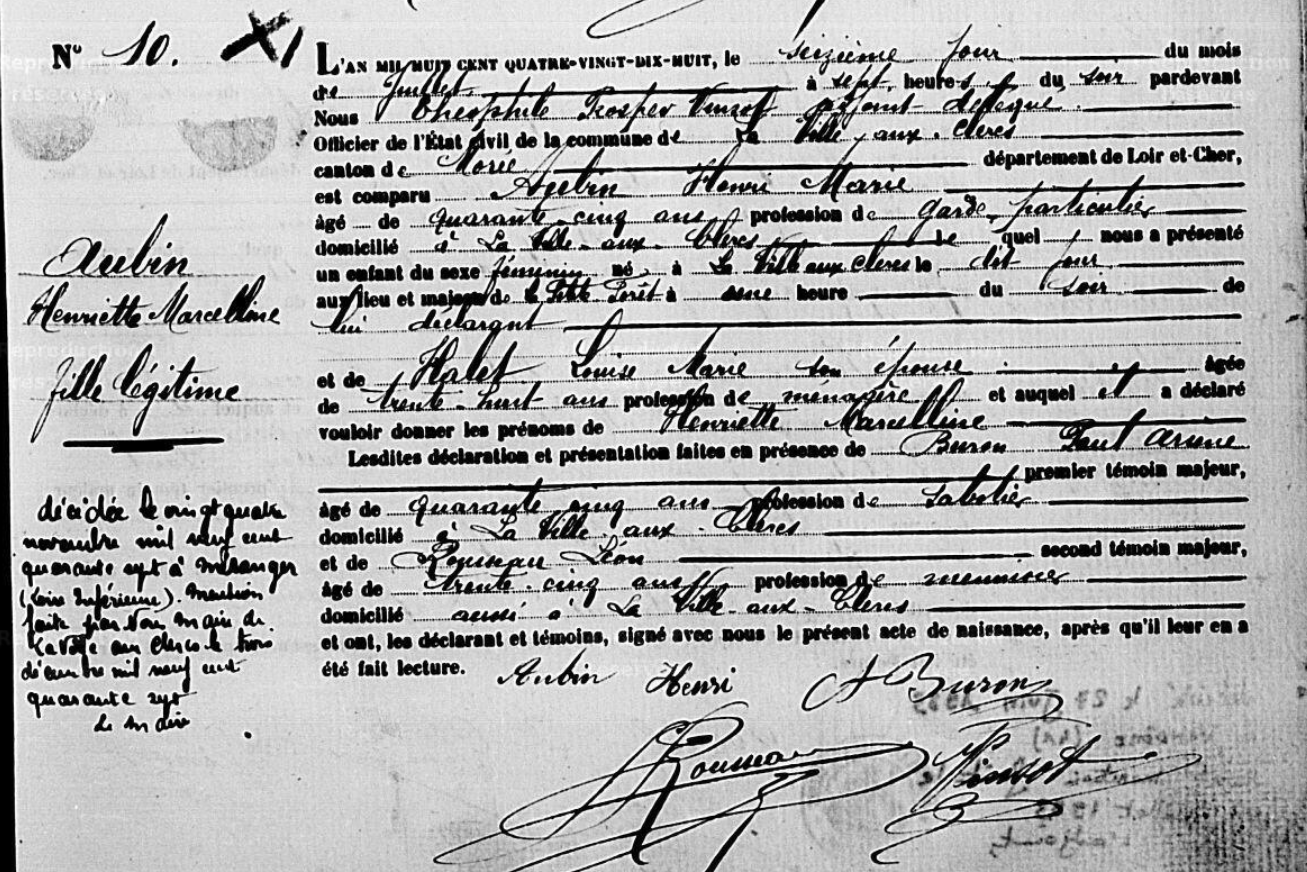 N° 10. XI
L'AN MIL HUIT CENT QUATRE-VINGT-DIX-HUIT, le seizième jour du mois
de Juillet à sept heures du soir pardevant
Nous Théophile Prosper Vinsot adjoint délégué
Officier de l'État civil de la commune de La Ville aux Clercs
canton de Morée département de Loir et-Cher,
est comparu Aubin Henri Marie
âgé de quarante-cinq ans, profession de garde particulier
domicilié à La Ville-aux-Clercs le quel nous a présenté
un enfant du sexe féminin né à La Ville aux Clercs le dit jour
aux lieu et maison de la Petite Forêt à une heure du soir de
lui déclarant
et de Halet Louise Marie son épouse âgée
de trente-huit ans profession de ménagère et auquel il a déclaré
vouloir donner les prénoms de Henriette Marcelline
Lesdites déclaration et présentation faites en présence de Buron Paul Arsène
premier témoin majeur,
âgé de quarante cinq ans profession de sabotier
domicilié à La Ville-aux-Clercs
et de Rousseau Léon second témoin majeur,
âgé de trente-cinq ans profession de menuisier
domicilié aussi à La Ville-aux-Clercs
et ont, les déclarant et témoins, signé avec nous le présent acte de naissance, après qu'il leur en a
été fait lecture.
Aubin Henri A Buron
Rousseau Vinsot
Aubin
Henriette Marcelline
fille légitime
décédée le vingt quatre
novembre mil neuf cent
quarante sept à Mésanger
(Loire Inférieure). Mention
faite par Nous maire de
La Ville aux Clercs le trois
décembre mil neuf cent
quarante sept
Le Maire